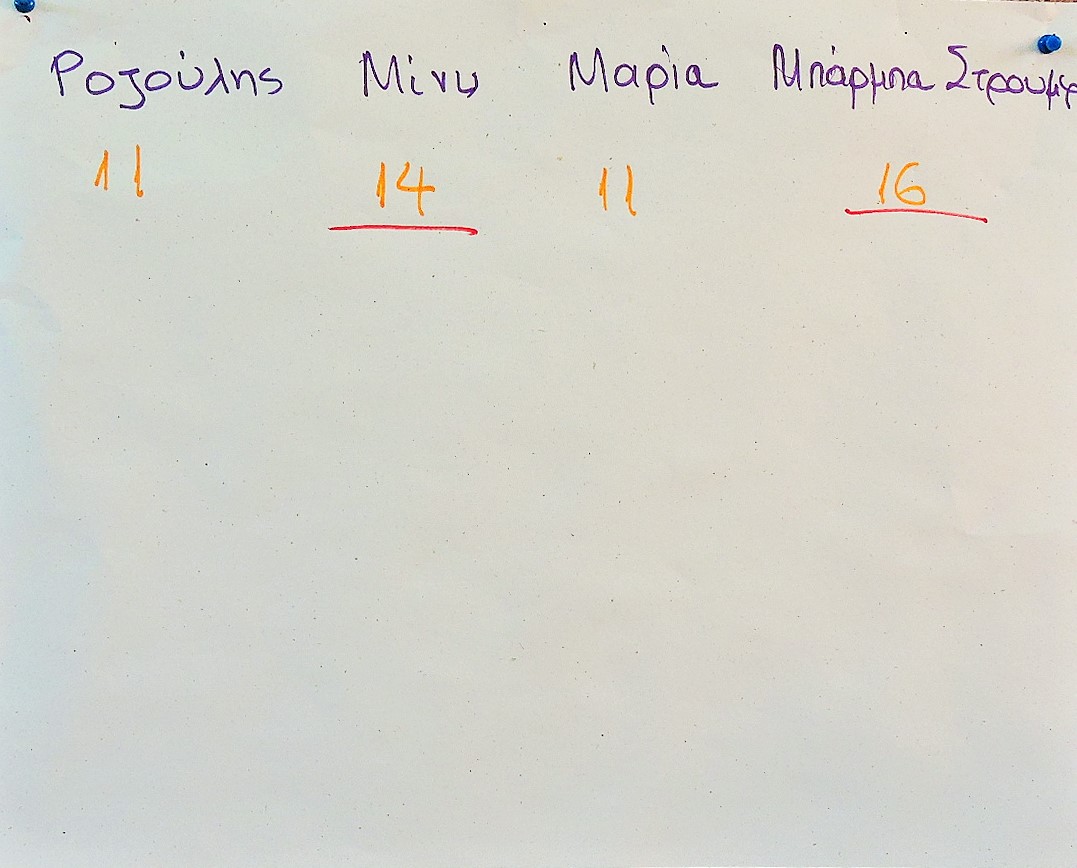 Ροζούλης Μίνω Μαρία Μπάρμπα Στρουμφ
11 14 11 16